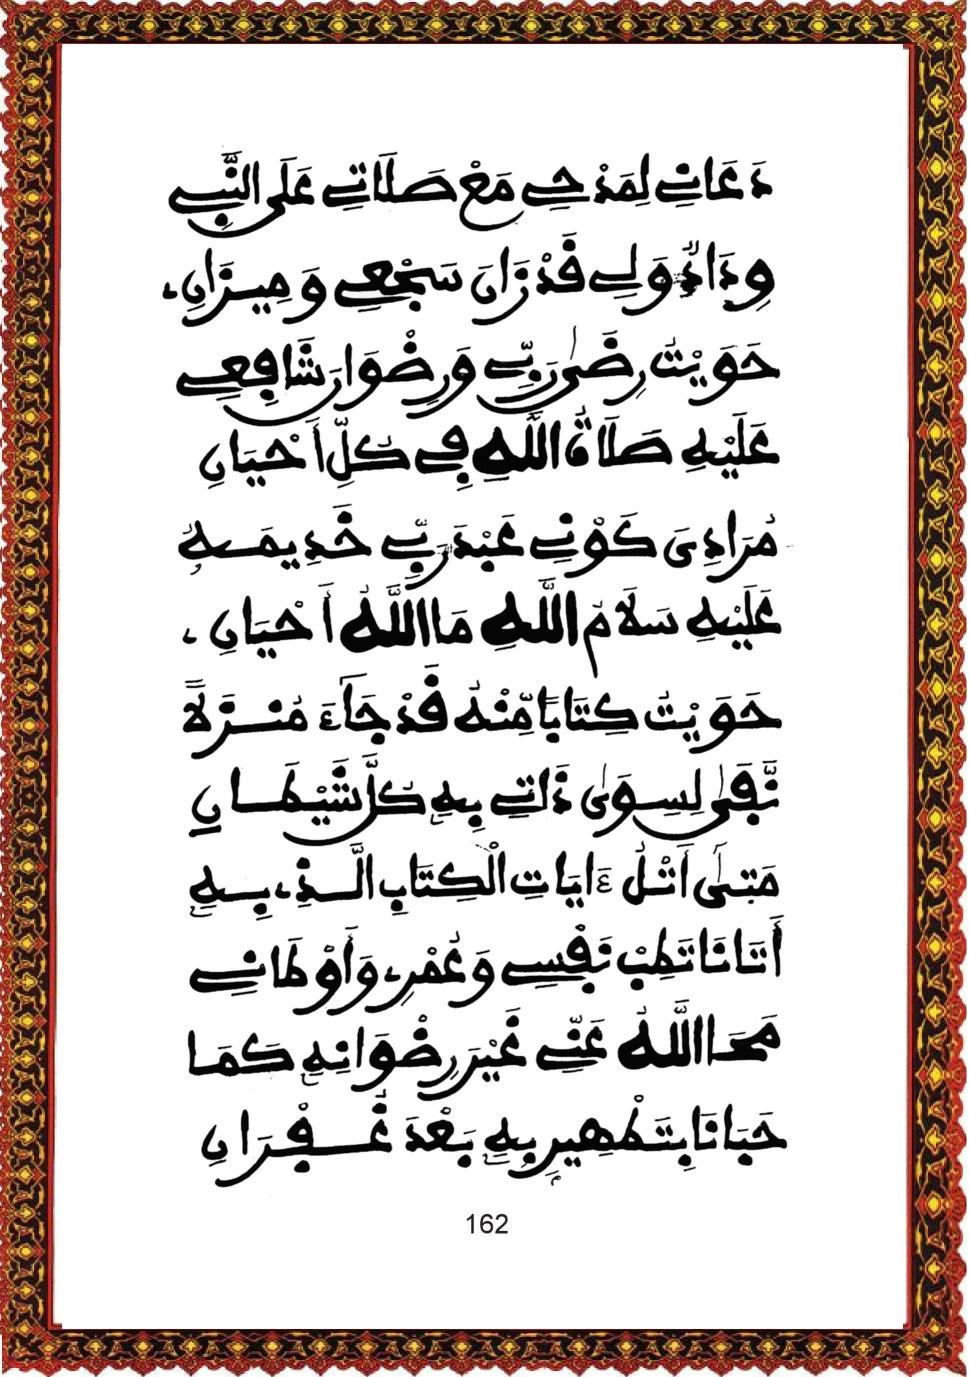 دَعَانِي لِمَدْحِي مَعْ صَلَاتِي عَلَى النَّبِي
وِدَادٌ وَلِي قَدْ زَانَ سَجْعِي وَمِيزَانِي
حَوَيْتُ رِضَى رَبِّي وَرِضْوَانَ شَافِعِي
عَلَيْهِ صَلَاةُ اللَّهِ فِي كُلِّ أَحْيَانِ
مُرَادِيَ كَوْنِي عَبْدَ رَبِّي خَدِيمَهُ
عَلَيْهِ سَلَامُ اللَّهِ مَا اللَّهُ أَحْيَانِي
حَوَيْتُ كِتَابًا مِّنْهُ قَدْ جَاءَ مُنْزَلًا
نَّفَى لِسِوَى ذَاتِي بِهِ كُلَّ شَيْطَانِ
مَتَى أَتْلُ ءَايَاتِ الْكِتَابِ الَّذِي بِهِ
أَتَانَا تَطِبْ نَفْسِي وَعُمْرِي وَأَوْطَانِي
مَحَا اللَّهُ عَنِّي غَيْرَ رِضْوَانِهِ كَمَا
حَبَانَا بِتَطْهِيرٍ بِهِ بَعْدَ غُفْرَانِ
162